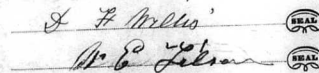 D H Willis SEAL
W E Gibson SEAL